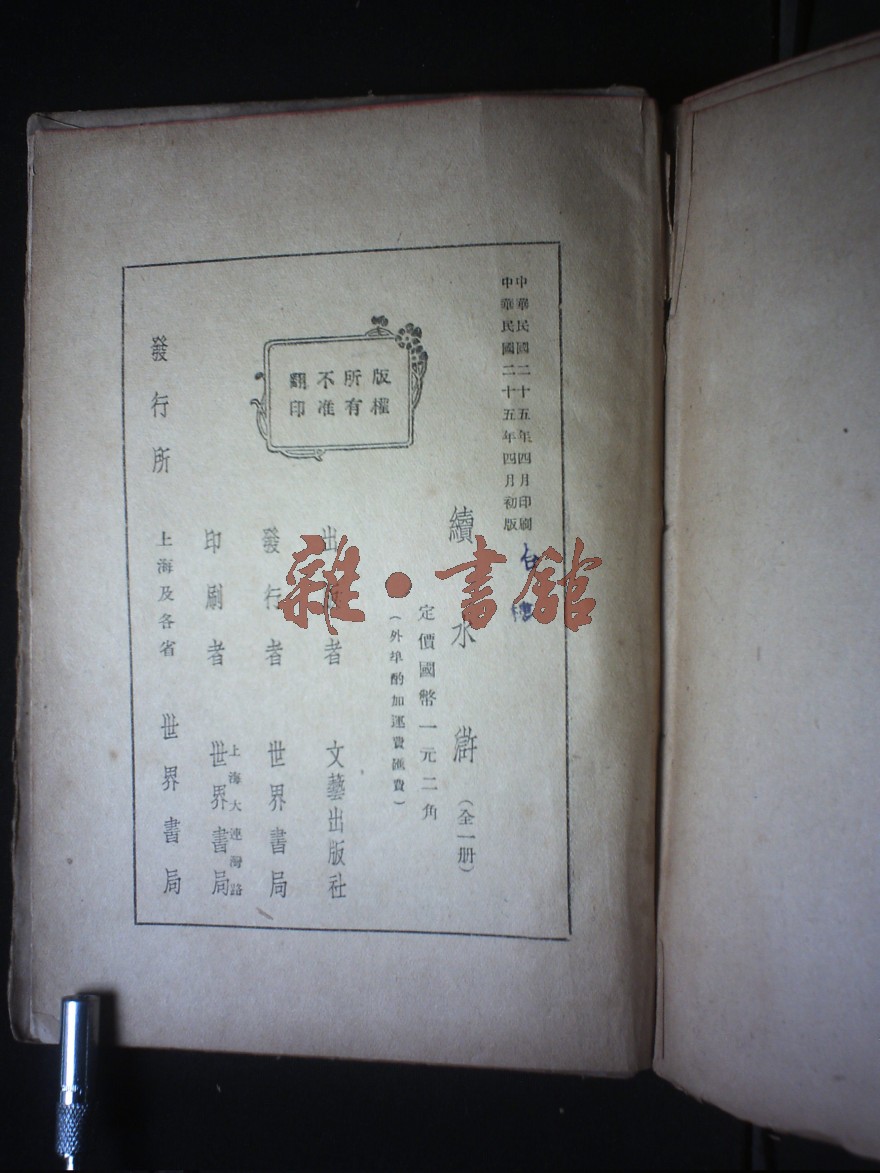 中華民國二十五年四月印刷
中華民國二十五年四月初版
續水滸（全一册）
定價國幣一元二角
（外埠酌加運費匯費）
版權
所有
不准
翻印
出版者 文藝出版社
發行者 世界書局
上海大連灣路
印刷者 世界書局
發行所 上海及各省 世界書局
雜·書館